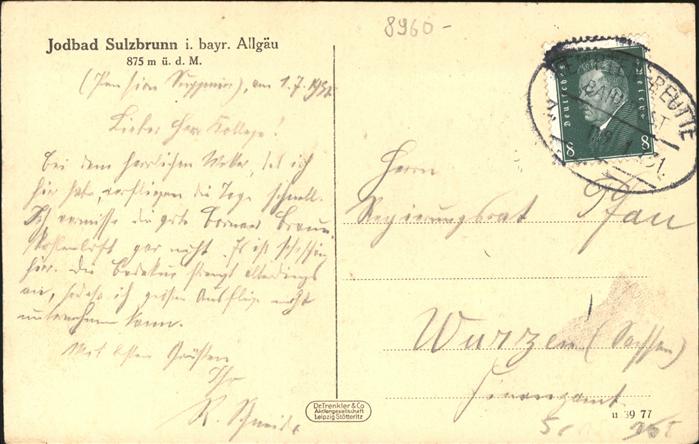 8960-
Jodbad Sulzbrunn i. bayr. Allgäu
875 m ü. d. M.
(Pension), am 1.7.1931
Lieber Herr Kollege!
Bei dem herrlichen Wetter, das ich
hier habe, verfliegen die Tage schnell.
Ich vermisse die gute Bornaer Braun-
kohlenluft gar nicht. Es ist
hier. Die Badekur strengt allerdings
an, sodass ich grössere Ausflüge nicht
unternehmen kann.
Mit besten Grüßen
Ihr
R.
Deutsches Reich
8 8
REUTTE
BAHNPOST
31
Herrn
Regierungsrat Pfau
Wurzen (Sachsen)
Finanzamt
Dr. Trenkler & Co
Aktiengesellschaft
Leipzig-Stötteritz
u 39 77